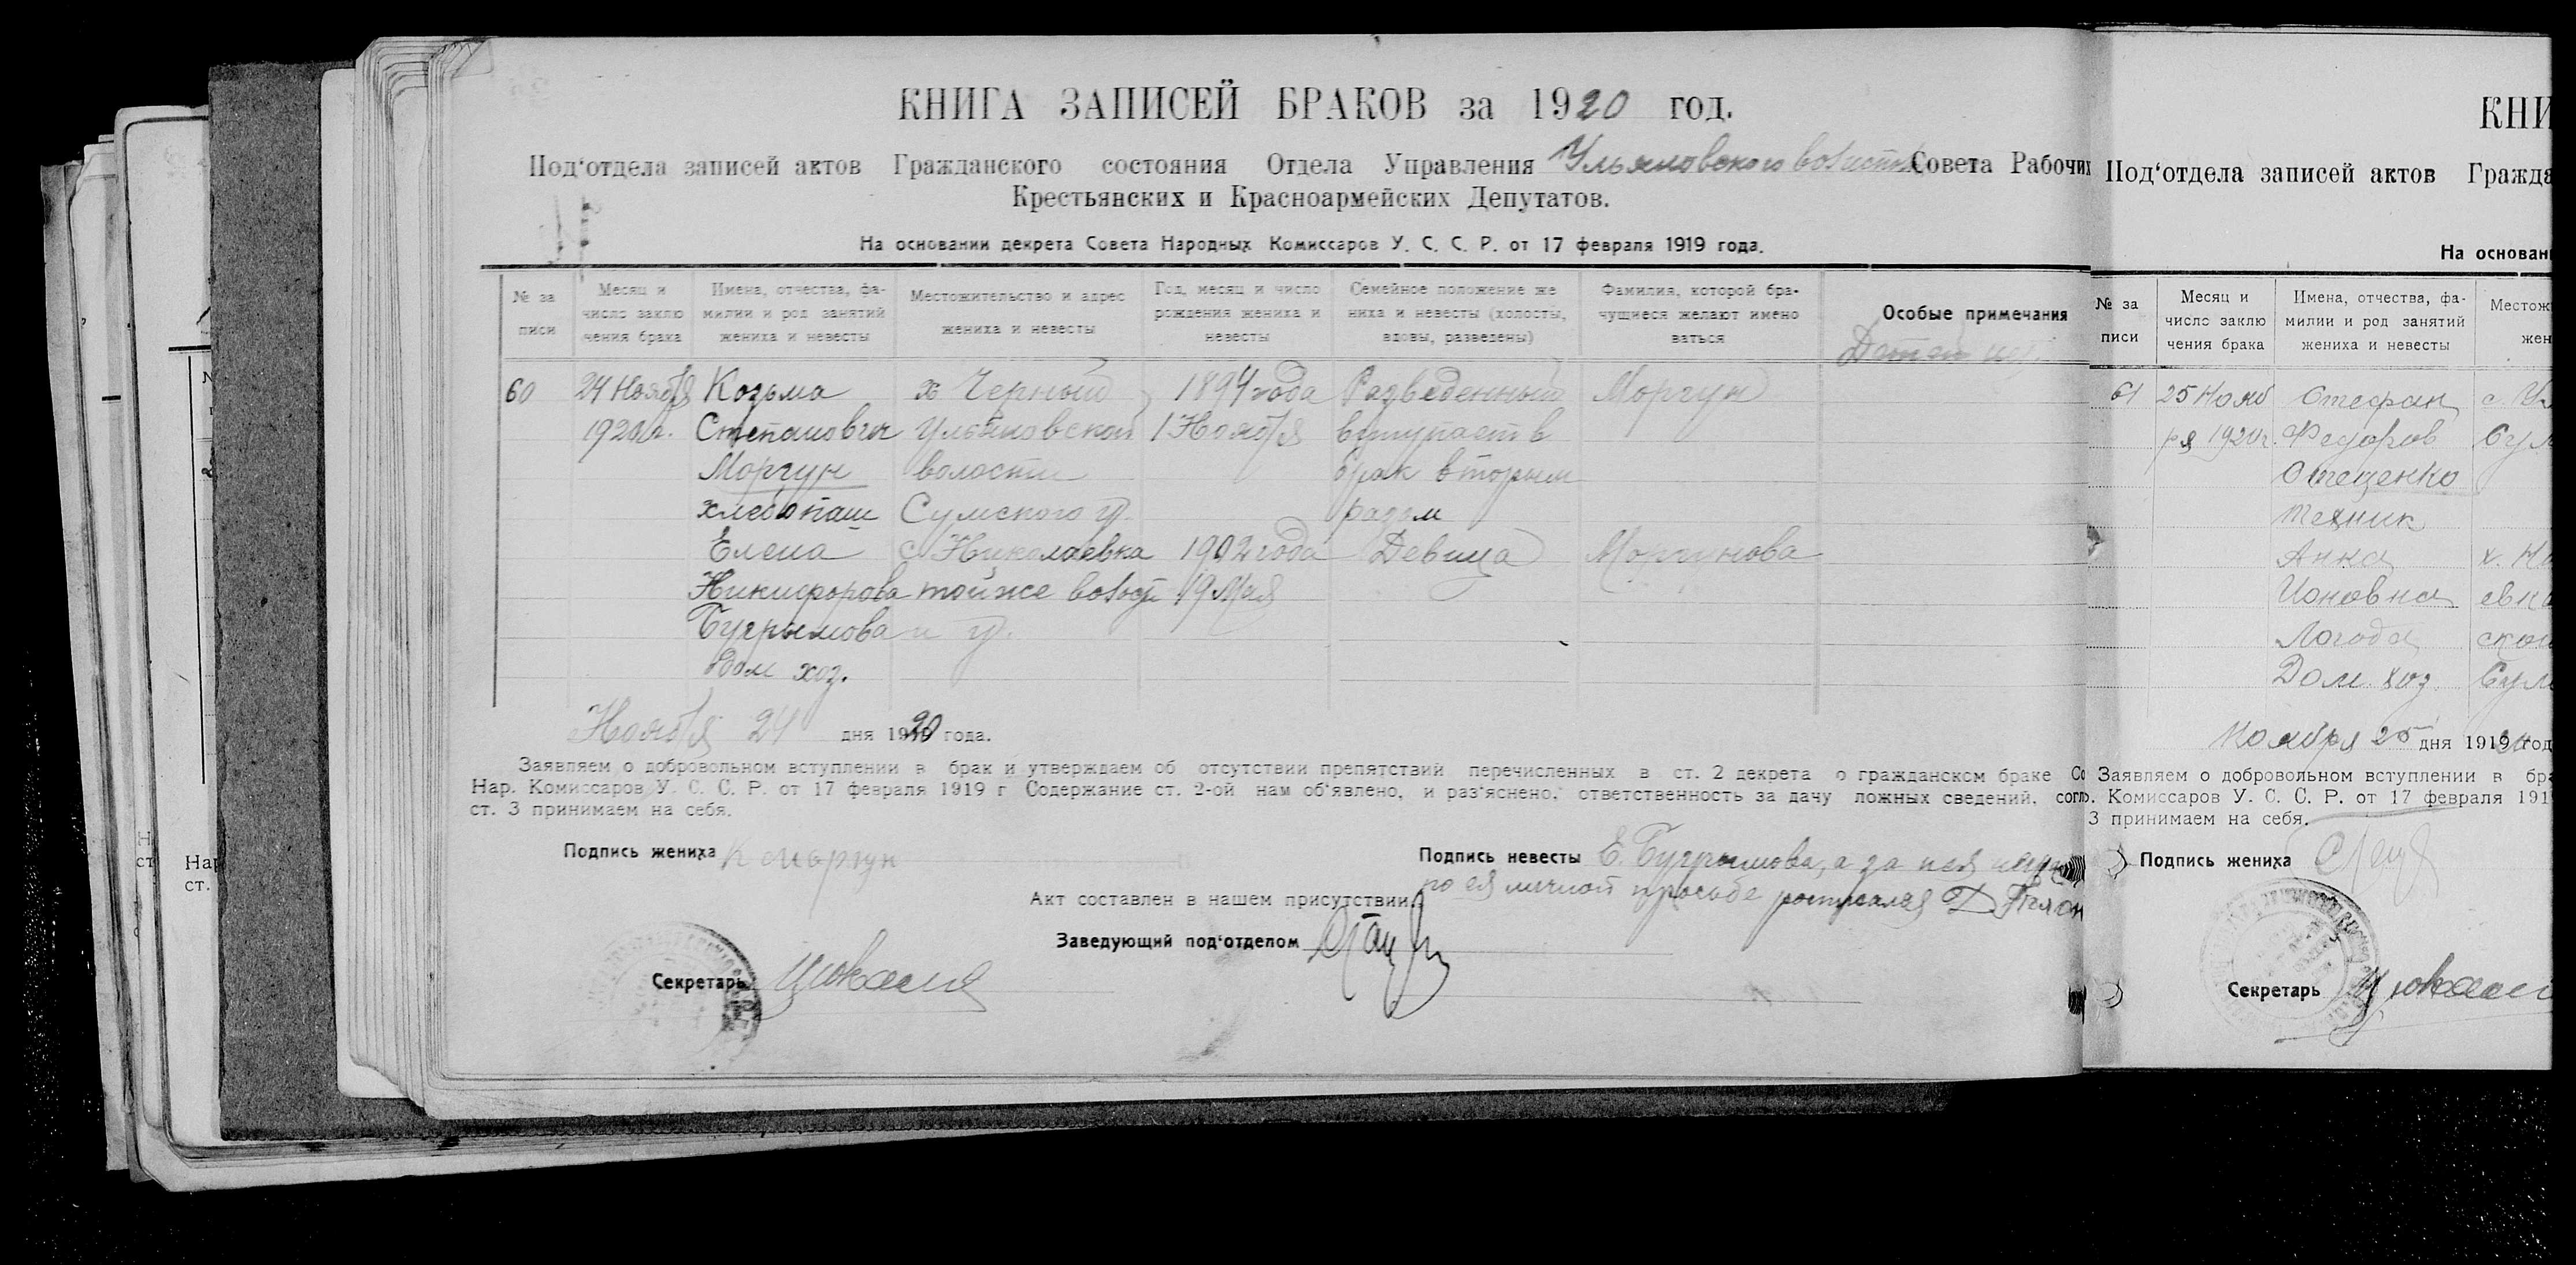 КНИГА ЗАПИСЕЙ БРАКОВ за 1920 год.
Под‘отдела записей актов Гражданского состояния Отдела Управления Ульяновского Совета Рабочих
Крестьянских и Красноармейских Депутатов.
На основании декрета Совета Народных Комиссаров У. С. С. Р. от 17 февраля 1919 года.
№ за писи
Месяц и число заклю чения брака
Имена, отчества, фа- милии и род занятий жениха и невесты
Местожительство и адрес жениха и невесты
Год, месяц и число рождения жениха и невесты
Семейное положение же ниха и невесты (холосты, вдовы, разведены)
Фамилия, которой бра- чущиеся желают имено ваться
Особые примечания
60 24 Ноября Козьма х Черный 1894 года Разведенный Моргун
1920 г. Степанович Ульяновской 1 Ноября вступает в
Моргун волости брак вторым
хлебопаш Сумского у. разом
Елена с. Николаевка 1902 года Девица Моргунова
Никифорова той же волост 19 Мая
Бугрымова и у.
Дом хоз.
Ноября 24 дня 1920 года.
Заявляем о добровольном вступлении в брак и утверждаем об отсутствии препятствий перечисленных в ст. 2 декрета о гражданском браке Со
Нар. Комиссаров У. С. С. Р. от 17 февраля 1919 г Содержание ст. 2-ой нам об‘явлено, и раз‘яснено, ответственность за дачу ложных сведений, согл
ст. 3 принимаем на себя.
Подпись жениха К Моргун
Подпись невесты Е. Бугрымова, а за нея
по ея личной просьбе росписался Д
Акт составлен в нашем присутствии.
Заведующий под‘отделом
Секретарь
КНИ
Под‘отдела записей актов Гражда
На основан
№ за писи
Месяц и число заклю чения брака
Имена, отчества, фа- милии и род занятий жениха и невесты
Местож жен
61 25 Нояб Стефан с. Ул
ря 1920 г. Федоров Сум
Стеценко
техник
Анна х. Ни
Ионовна евка
Логода ской
Дом. хоз. Сум
Ноября 25 дня 1919 год
Заявляем о добровольном вступлении в бра
. Комиссаров У. С. С. Р. от 17 февраля 191
3 принимаем на себя.
Подпись жениха
Секретарь